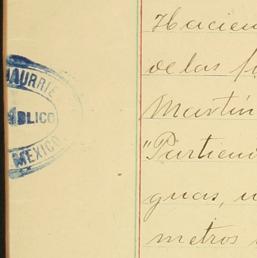 AURRIE
BLICO
MEXICO
Hacien
de las f
Martín
"Partien
guas, u
metros